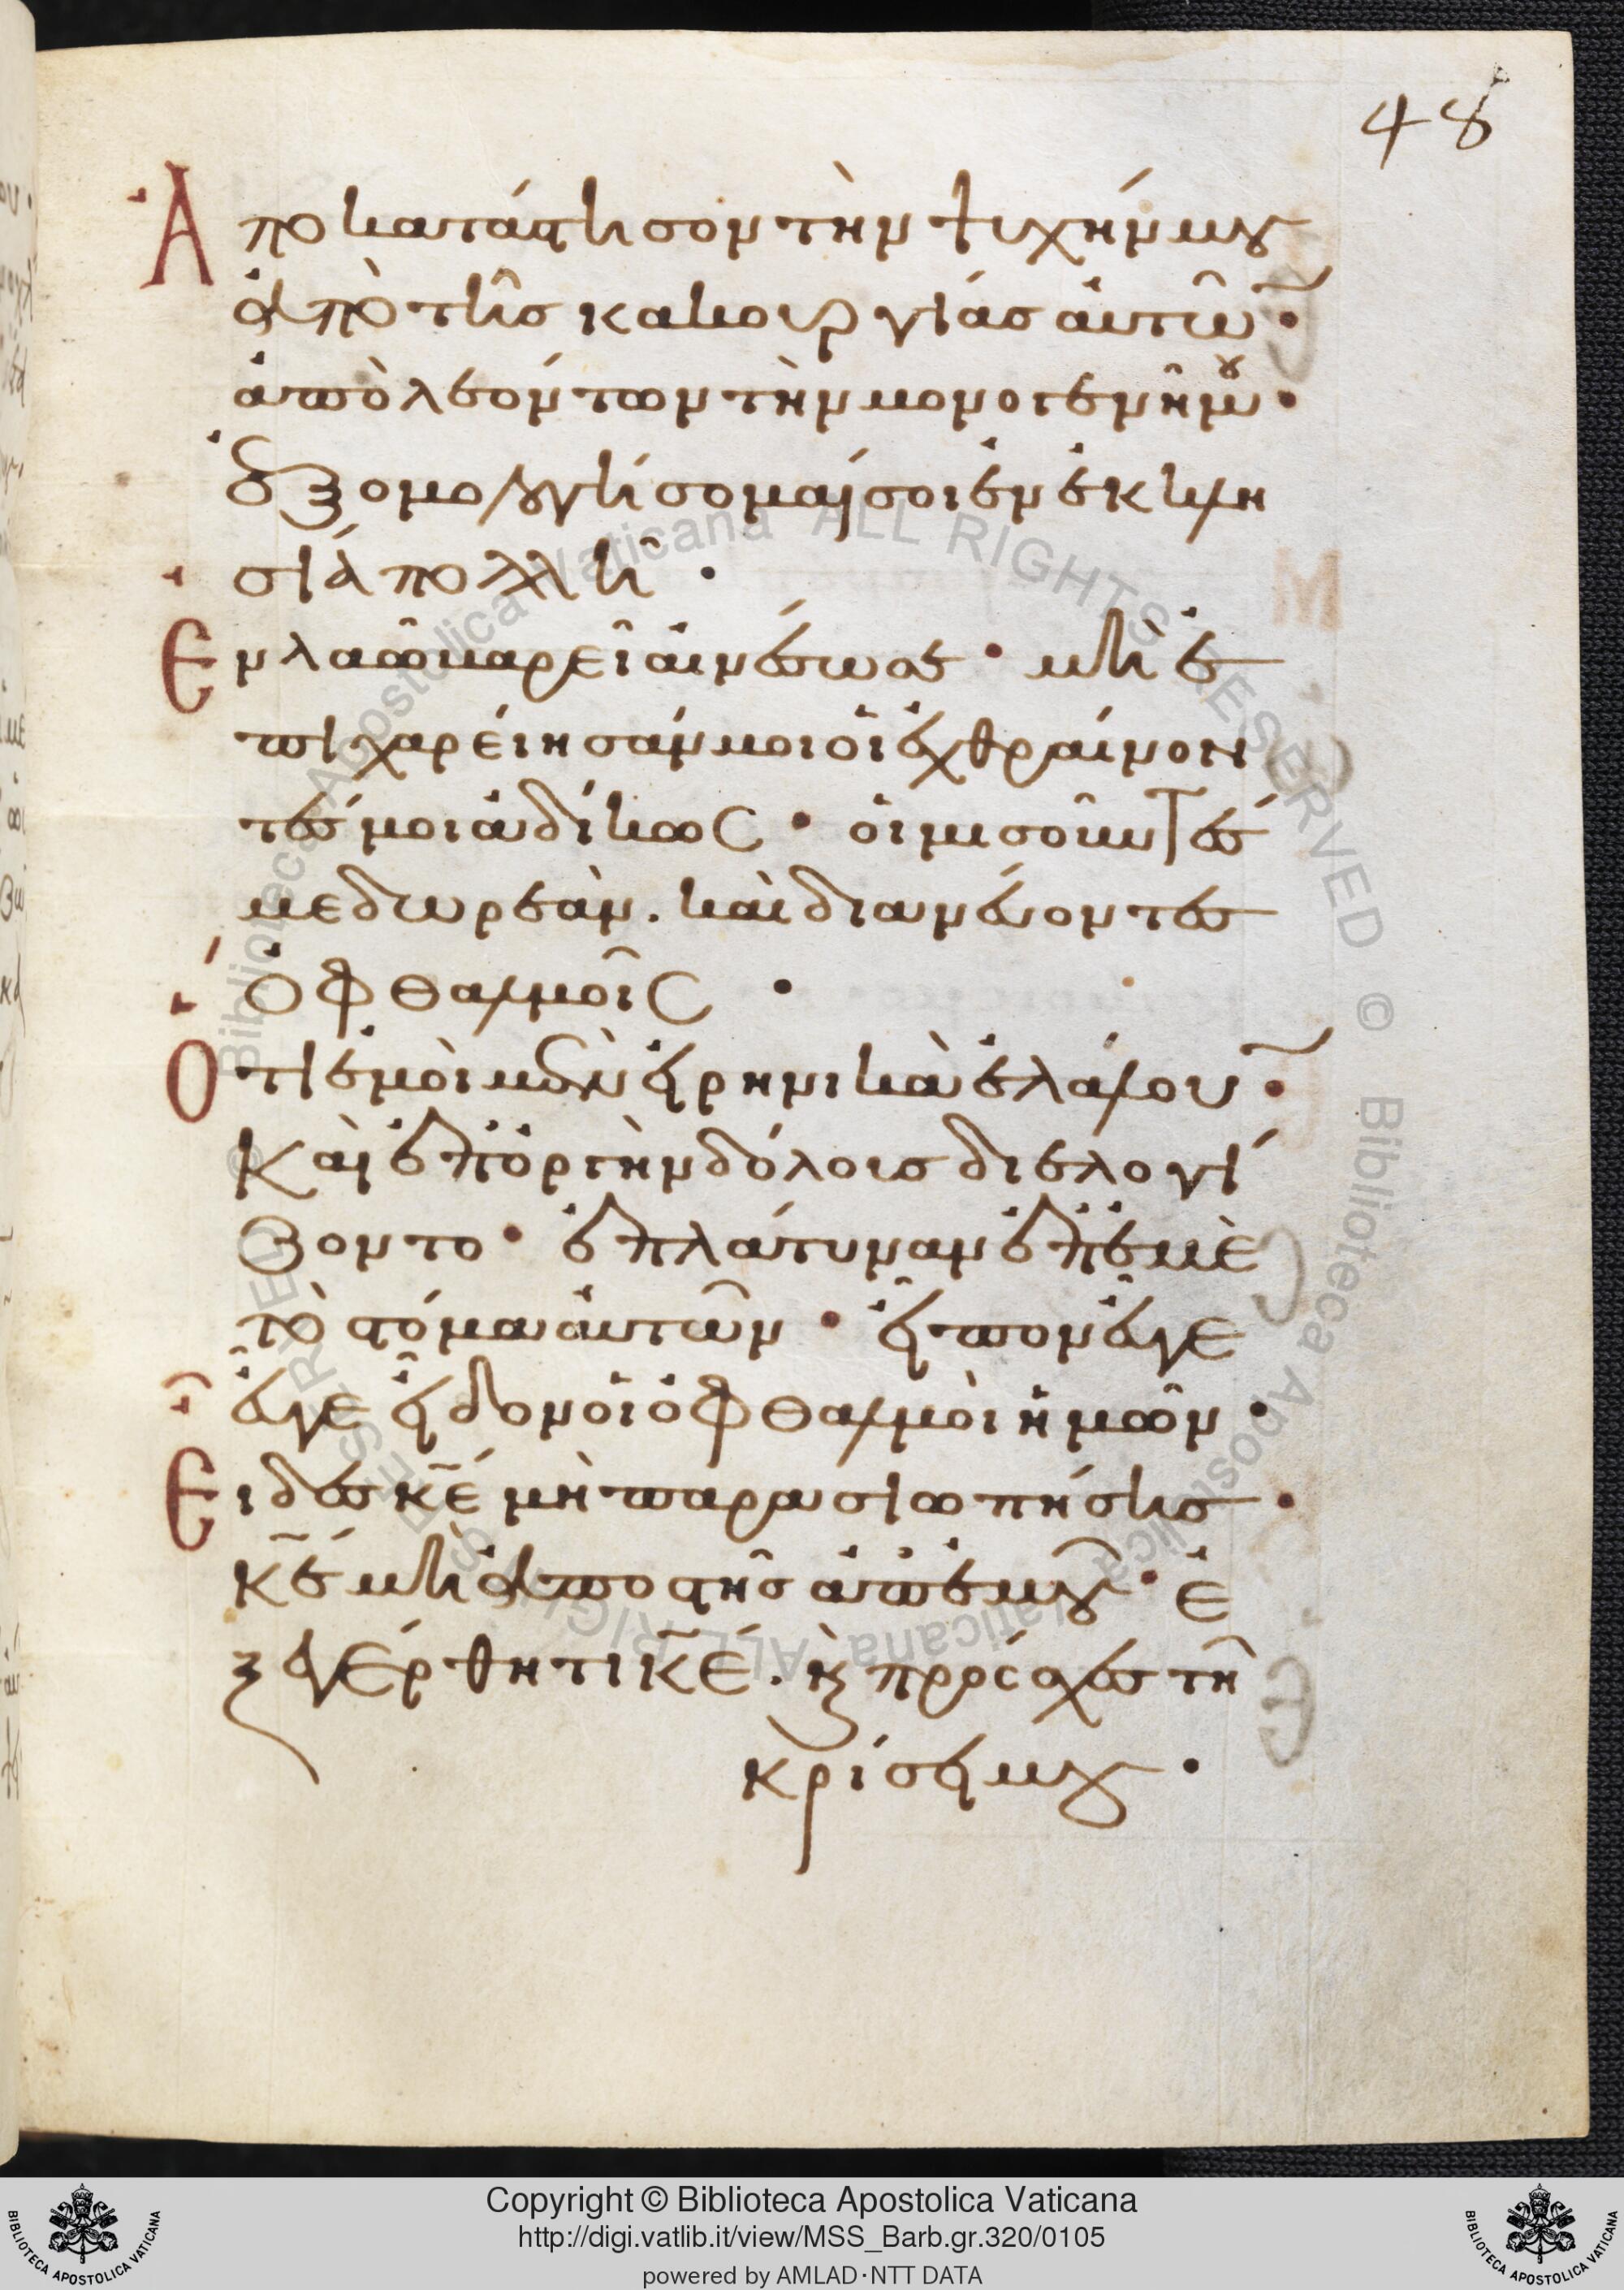 48
Ἀποκατάστησον τὴν ψυχήν μου
ἀπὸ τῆς κακουργίας αὐτῶ̅·
ἀπὸ λεόντων τὴν μονογενῆ μου·
ἐξομολογήσομαί σοι ἐν ἐκκλη
σία πολλῆ·
Ἐν λαῶ βαρεῖ αἰνέσω σε· μὴ ἐ
πιχαρείησάν μοι οἱ ἐχθραίνον
τές μοι ἀδίκως· οἱ μισοῦντές
με δωρεὰν. καὶ διανεύοντες
ὀφθαλμοῖς·
Ὅτι ἐμοὶ μὲν εἰρηνικὰ ἐλάλου̅·
Καὶ ἐπ ὀργὴν δόλοις διελογί
ζοντο· ἐπλάτυναν ἐπ ἐμὲ
τὸ στόμα αὐτῶν· εἶπον εὖγε
εὖγε εἶδον οἱ ὀφθαλμοὶ ἡμῶν·
Εἶδες κ̅ε̅ μὴ παρασιωπήσης·
κ̅ε̅ μὴ ἀποστῆς ἀπ ἐμοῦ· ἐ
ξεγέρθητι κ̅ε̅. κ πρόσχες τῆ
κρίσει μου·
Copyright © Biblioteca Apostolica Vaticana
http://digi.vatlib.it/view/MSS_Barb.gr.320/0105
powered by AMLAD·NTT DATA
BIBLIOTECA APOSTOLICA VATICANA
BIBLIOTECA APOSTOLICA VATICANA